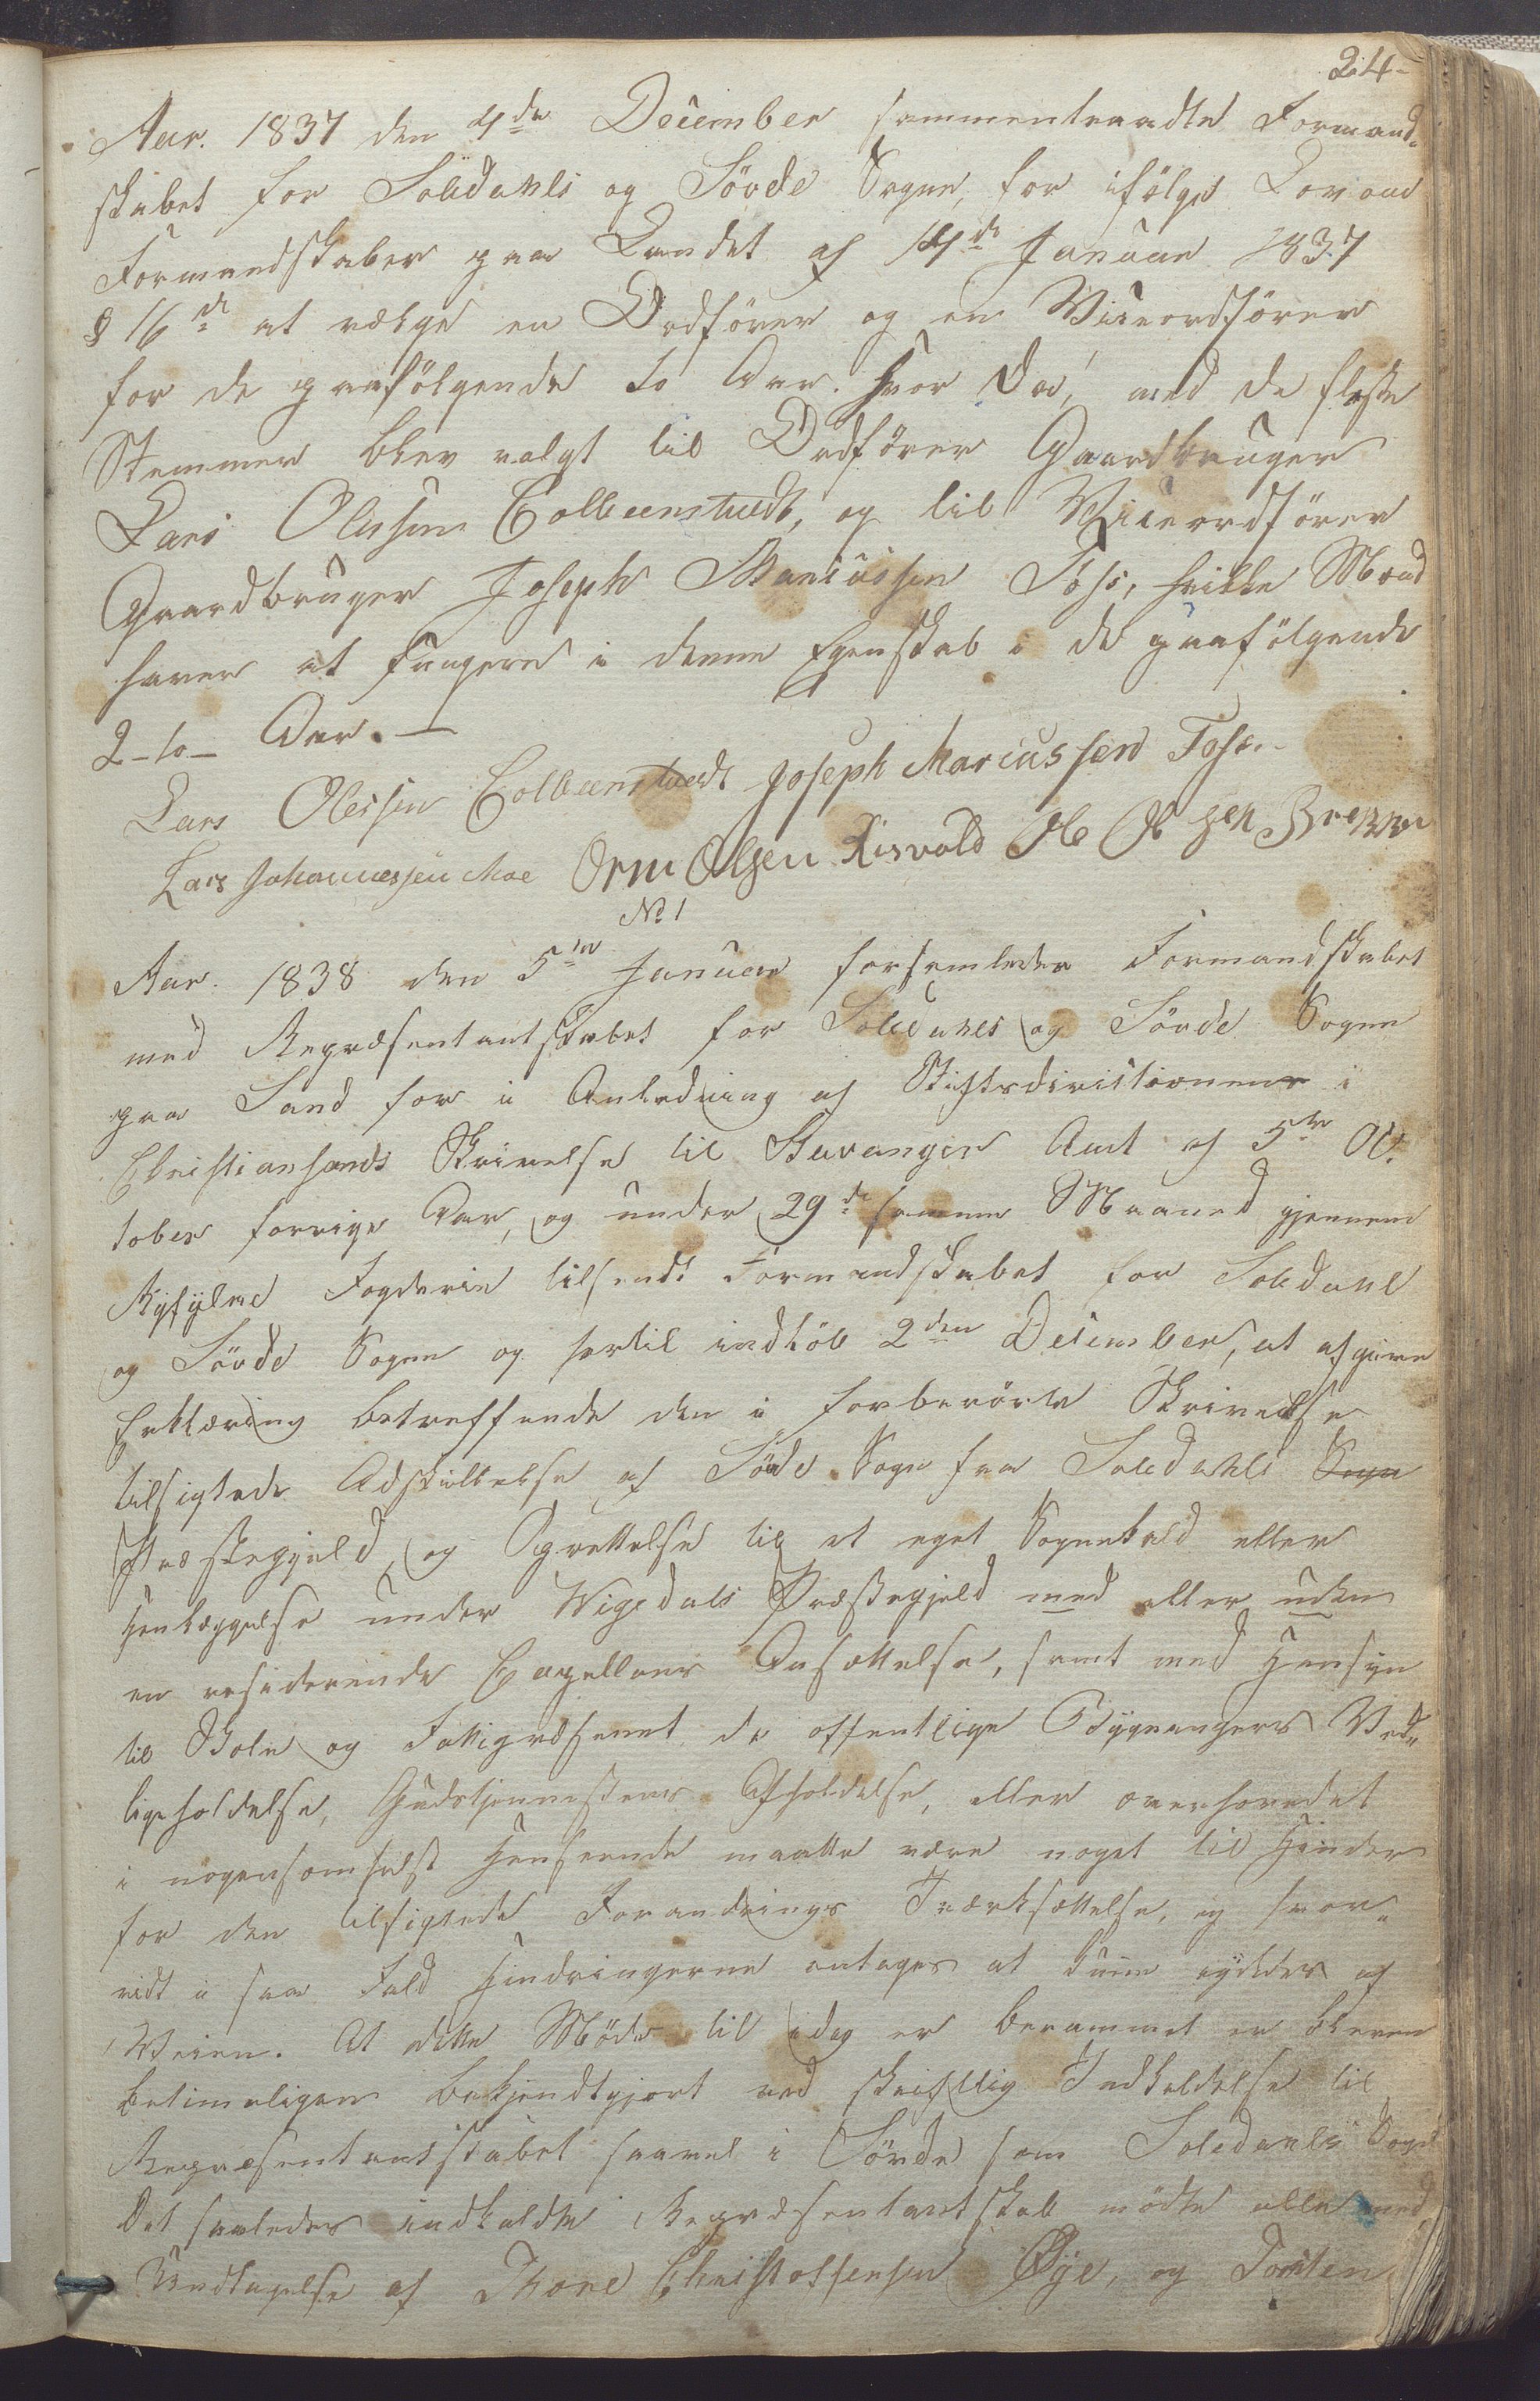 24-
Aar. 1837 den 4de December sammentraadte Formand-
skabet for Soledahls og Søvde Sogne, for ifølge Lov om
Formandskaber paa Landet af 14de Januar 1837
§ 16de at vælge en Ordfører og en Viceordfører
for de paafølgende to Aar. Hvor da, med de fleste
Stemmer blev valgt til Ordfører Gaardbruger
Lars Olessen Colbeenstvedt, og til Viceordfører
Gaardbruger Joseph Marcussen Foss, hvilke Mænd
haver at fungere i denne Egenskab i de paafølgende
2 - to - Aar. —
Lars Olessen Colbeenstvedt Joseph Marcussen Foss
Lars Johannessen Moe Orm Olsen Risvold
No 1
Aar. 1838 den 5te Januar forsamledes Formandskabet
med Repræsentantskabet for Soledahls og Søvde Sogne
paa Sand for i Anledning af Stiftsdirectionens i
Christiansands Skrivelse til Stavanger Amt af 5te Oc-
tober forrige Aar, og under 29de samme Maaned gjennem
Ryfylke Fogderie tilsendt Formandskabet for Soledahl
og Søvde Sogne og hertil indløb 2den December, at afgive
Erklæring betreffende den i forberørte Skrivelse
tilsigtede Adskillelse af Søvde Sogn fra Soledahls Sogn
Præstegjeld, og Oprettelse til et eget Sognekald eller
Henlæggelse under Wigedals Præstegjeld med eller uden
en residerende Capellans Ansættelse, samt med Hensyn
til Skole og Fattigvæsenet de offentlige Bygningers Ved-
ligeholdelse, Gudstjenestens Afholdelse, eller overhovedet
i nogensomhelst Henseende maatte være noget til Hinder
for den tilsigtede Forandrings Iværksættelse, og hvor-
vidt i saa Fald Hindringerne antages at kunne ryddes af
Veien. At dette Møde til idag er berammet er bleven
betimeligen bekjendtgjort ved skriftlig Indkaldelse til
Repræsentantskabet saavel i Søvde som Soledahls Sogn
Det saaledes indkaldte Repræsentantskab mødte alle med
Undtagelse af Thore Christoffersen Øye, og